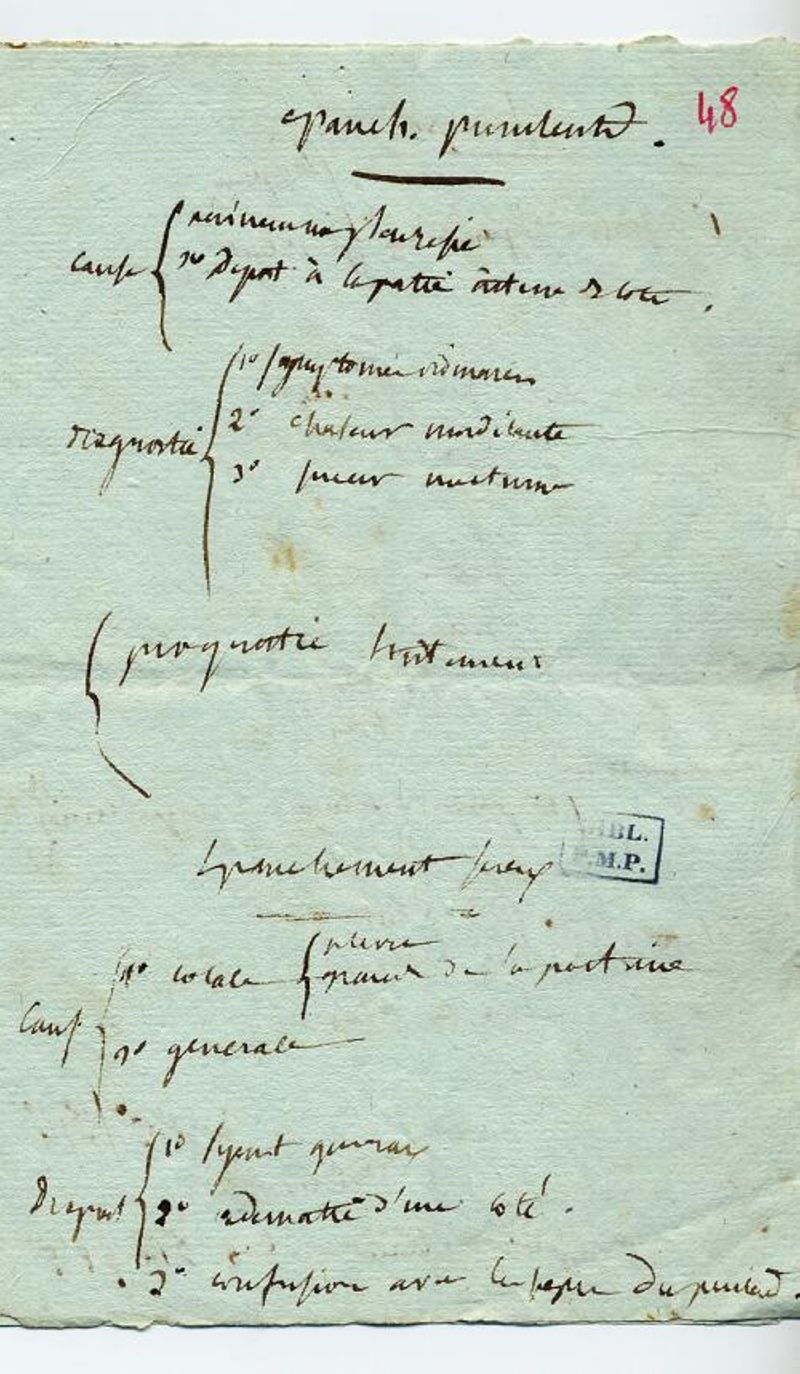 48
epanch. purulent.
cause
pleuresie
2º depot à la partie externe du coté.
diagnostic
1º symptomes ordinaires
2º chaleur mordicante
3º sueur nocturne
prognostic traitement
BIBL.
F.M.P.
Epanchement sereux
Caus
1º locale
plevre
parois de la poitrine
2º generale
Diagnost
1º sympt generaux
2º edematie d'une coté.
3º confusion avec les du purulent.